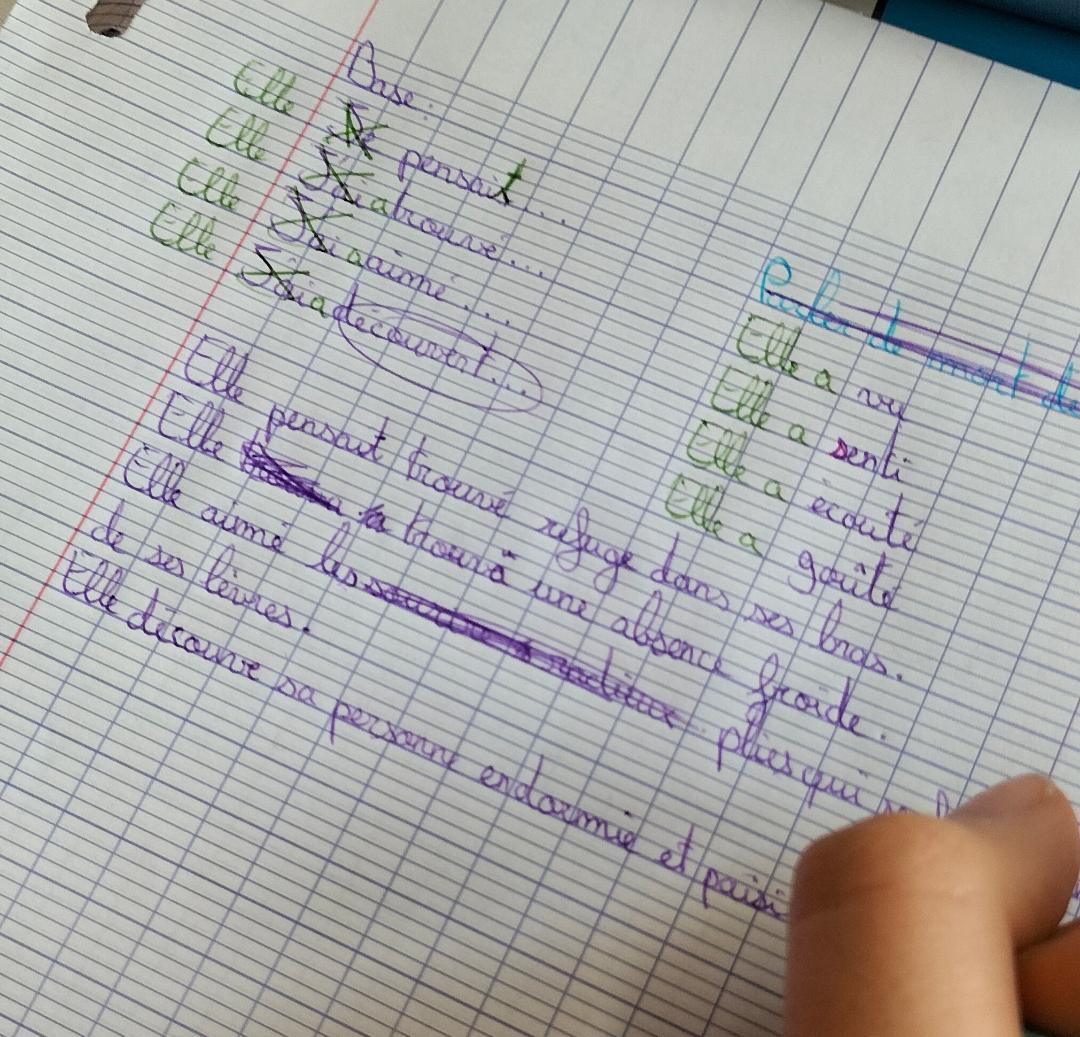 Base :
Elle pensait...
Elle a trouvé...
Elle a aimé...
Elle a découvert...
Elle a vu
Elle a senti
Elle a écouté
Elle a goûté
Elle pensait trouvé refuge dans ses bras.
Elle trouva une absence froide.
Elle aimé les plies qui
de ses lèvres.
Elle découvre sa personne endormie et